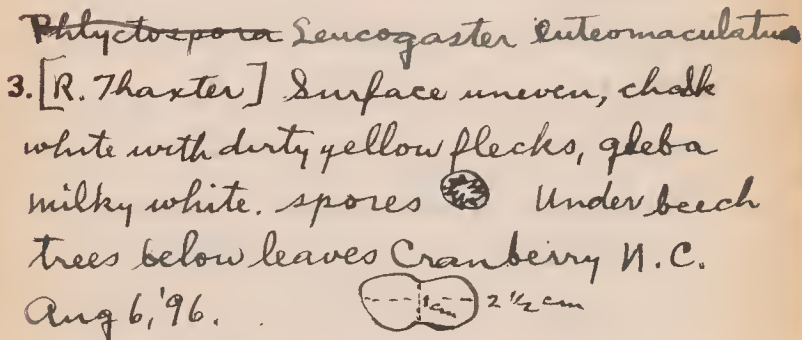 Phlyctospora Leucogaster luteomaculatus
3. [R. Thaxter] Surface uneven, chalk
white with dirty yellow flecks, gleba
milky white. spores Under beech
trees below leaves Cranberry N.C.
Aug 6, '96. 1cm 2 1/2 cm